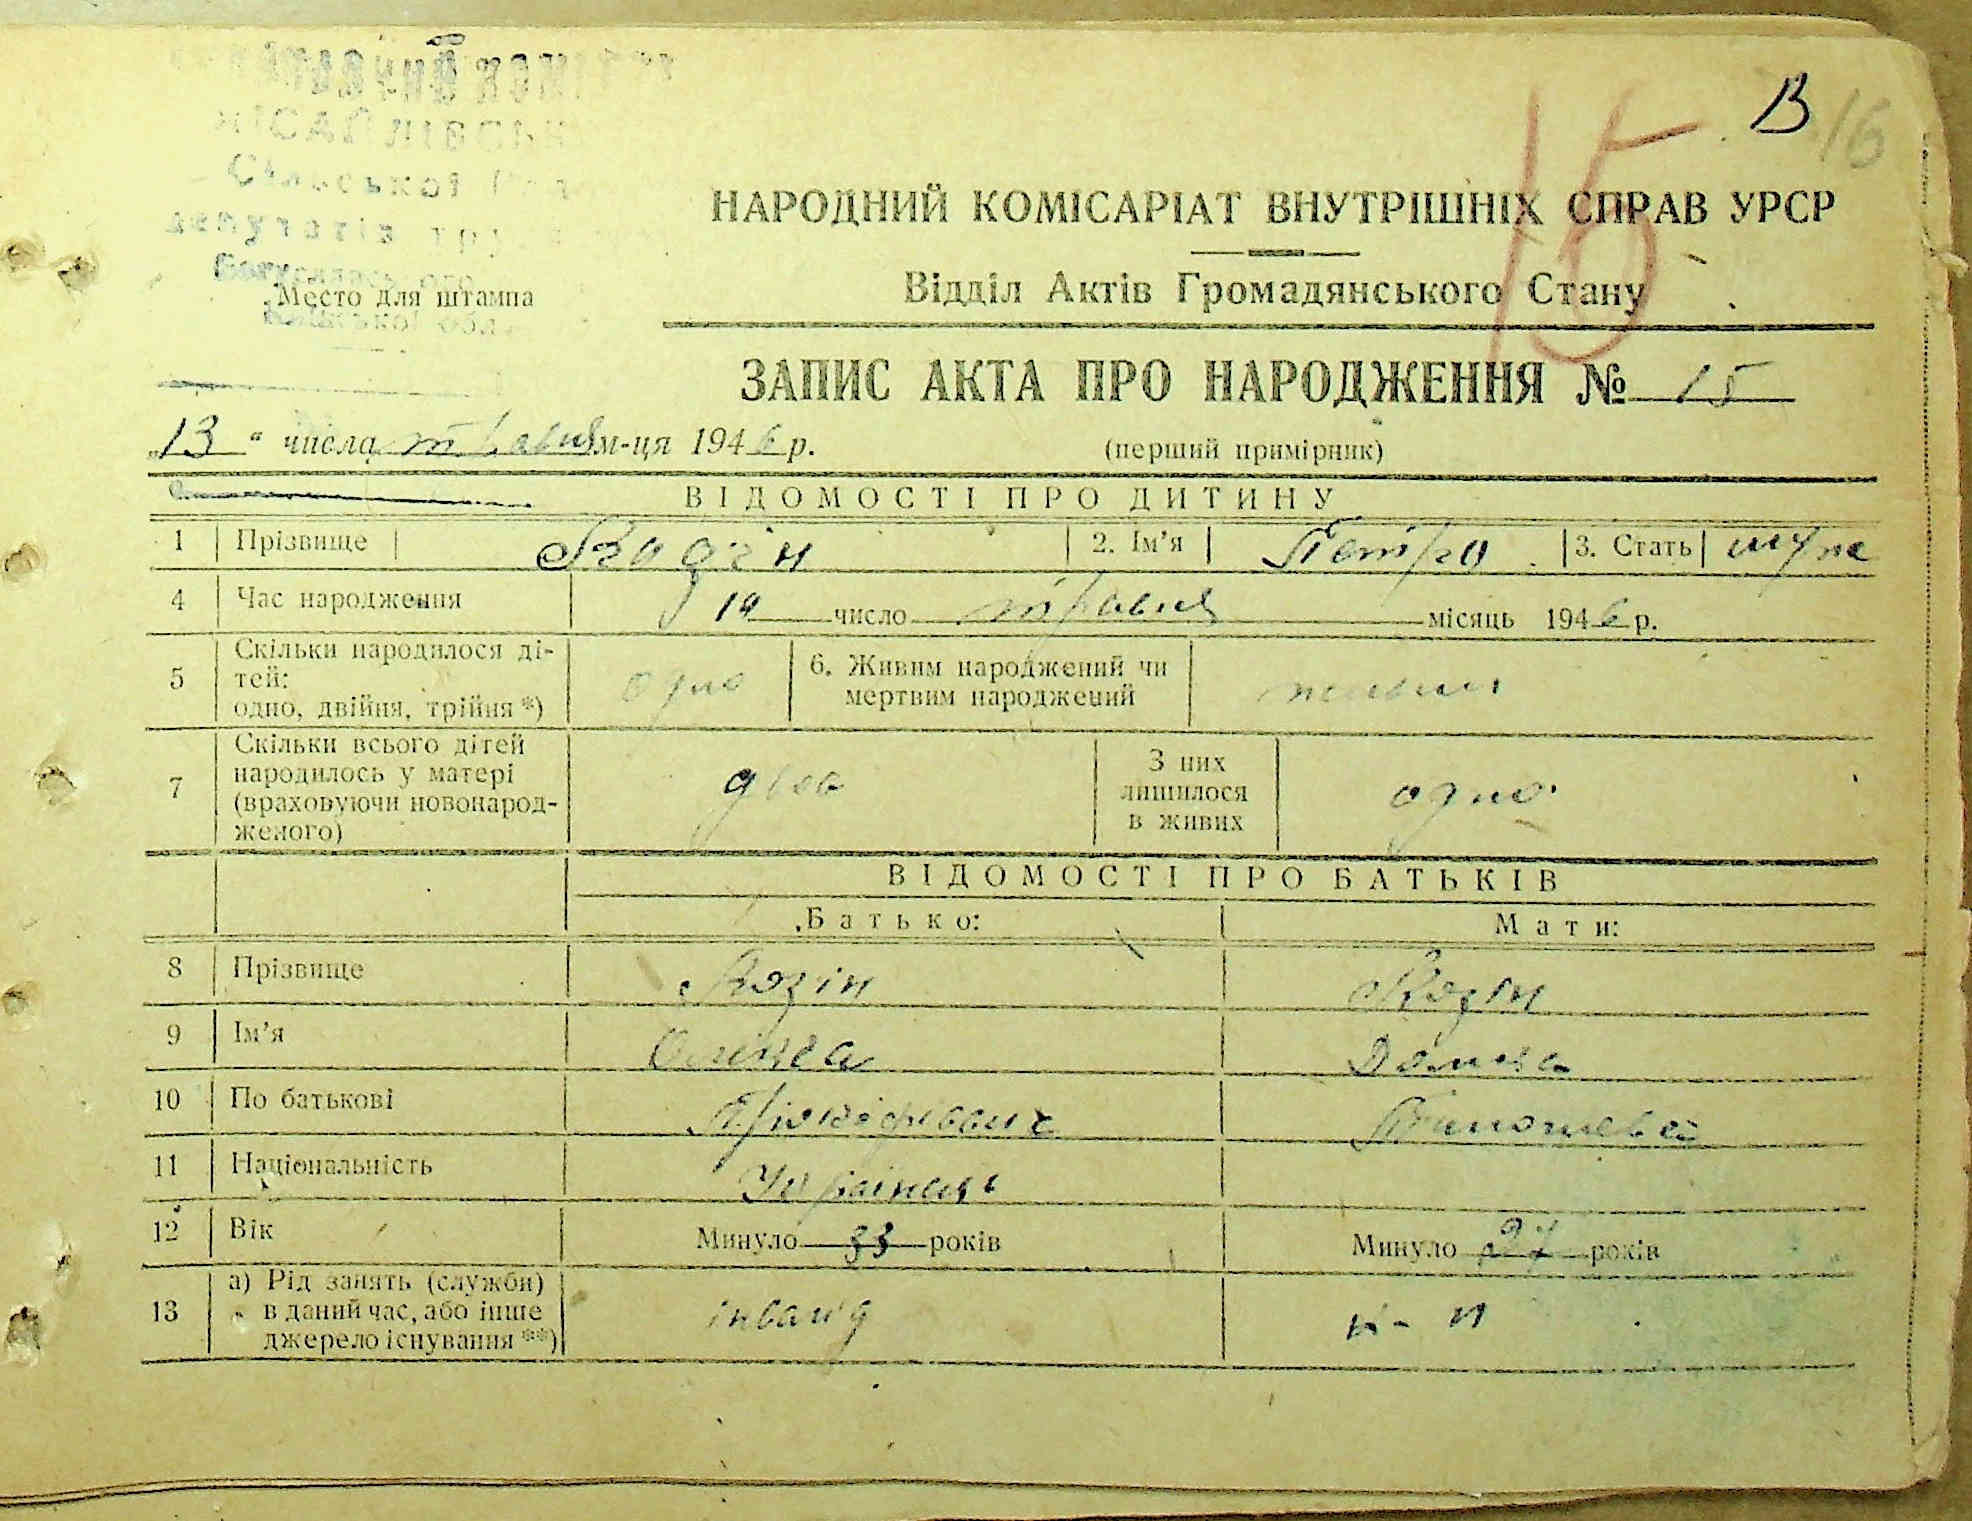 В 16
15
Сільської
депутатів
Богуславського
Київської обл.
Место для штампа
НАРОДНИЙ КОМІСАРІАТ ВНУТРІШНІХ СПРАВ УРСР
Відділ Актів Громадянського Стану
ЗАПИС АКТА ПРО НАРОДЖЕННЯ № 15
„13“ числа травня м-ця 1946 р. (перший примірник)
ВІДОМОСТІ ПРО ДИТИНУ
1 Прізвище 2. Ім’я Петро 3. Стать муж
4 Час народження число травня місяць 1946 р.
5 Скільки народилося ді-
тей:
одно, двійня, трійня *) одно 6. Живим народжений чи
мертвим народжений живим
7 Скільки всього дітей
народилось у матері
(враховуючи новонарод-
женого) двоє З них
лишилося
в живих одно
ВІДОМОСТІ ПРО БАТЬКІВ
Батько: Мати:
8 Прізвище Козін Козін
9 Ім’я Олекса
10 По батькові
11 Національність Українець
12 Вік Минуло 33 років Минуло років
13 а) Рід занять (служби)
в даний час, або інше
джерело існування **) інвалід